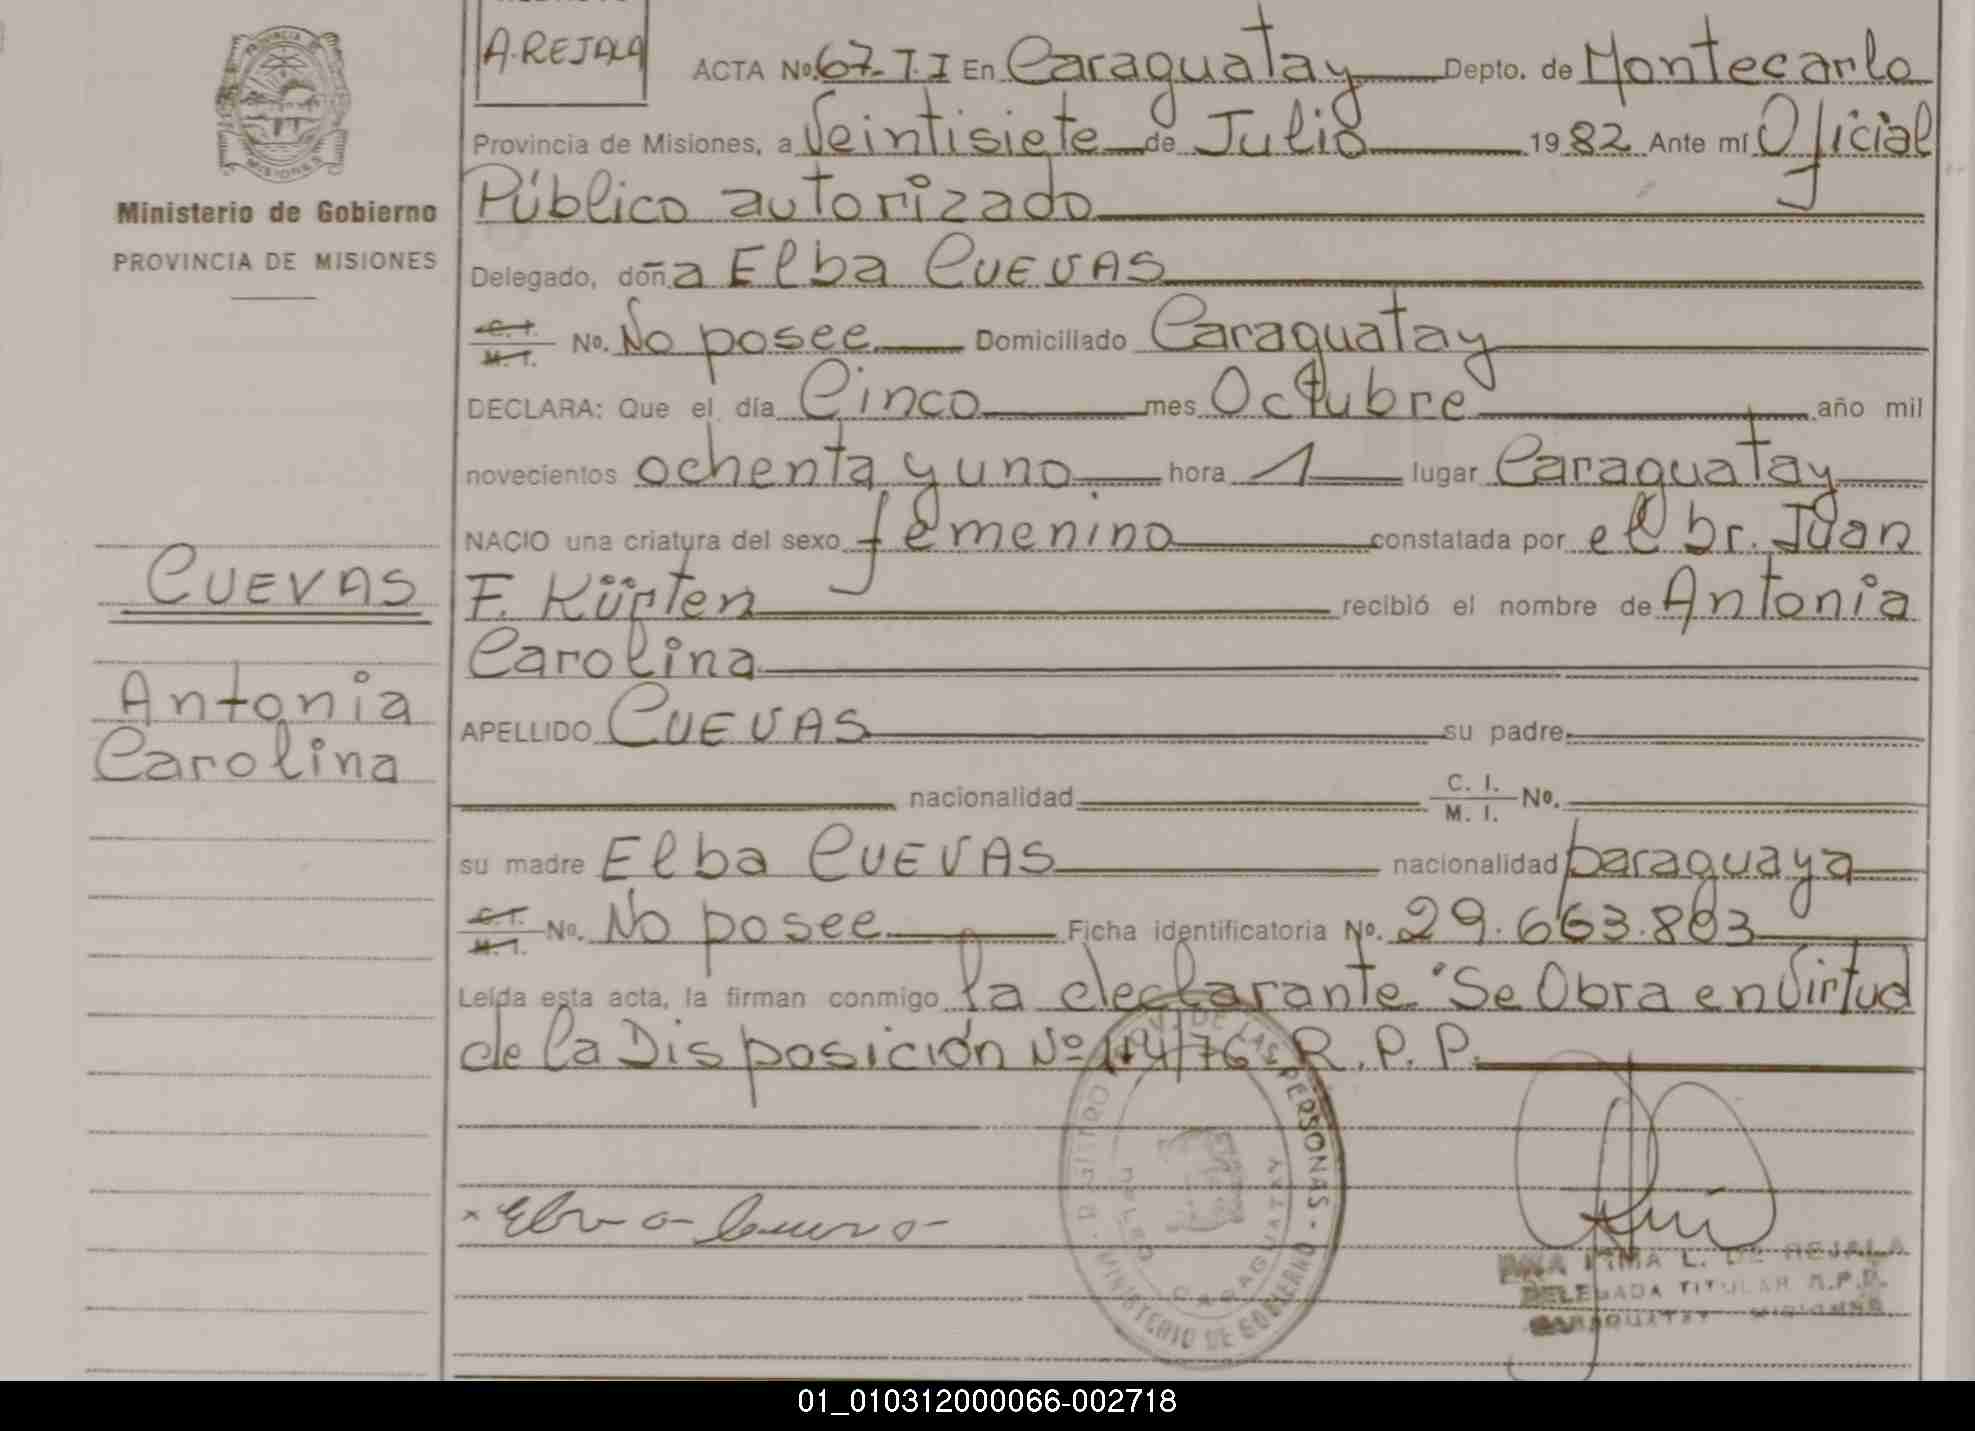 A. REJALA
ACTA No. 67-T.I En Caraguatay Depto. de Montecarlo
Provincia de Misiones, a Veintisiete de Julio 1982 Ante mí Oficial
Público autorizado
Delegado, doña Elba CUEVAS
C. I. / M. I. No. No posee Domiciliado Caraguatay
DECLARA: Que el día Cinco mes Octubre año mil
novecientos ochenta y uno hora 1 lugar Caraguatay
NACIO una criatura del sexo femenino constatada por el Dr. Juan
F. Kürten recibió el nombre de Antonia
Carolina
APELLIDO CUEVAS su padre
nacionalidad C. I. / M. I. No.
su madre Elba CUEVAS nacionalidad paraguaya
C. I. / M. I. No. No posee Ficha identificatoria No. 29.663.803
Leída esta acta, la firman conmigo la declarante "Se Obra en Virtud
de la Disposición Nº 114/76 R.P.P.
PROVINCIA DE
MISIONES
Ministerio de Gobierno
PROVINCIA DE MISIONES
CUEVAS
Antonia
Carolina
REGISTRO PROV. DE LAS PERSONAS - MINISTERIO DE GOBIERNO
CARAGUATAY
L. DE REJALA
DELEGADA TITULAR R.P.P.
CARAGUATAY MISIONES
01_010312000066-002718